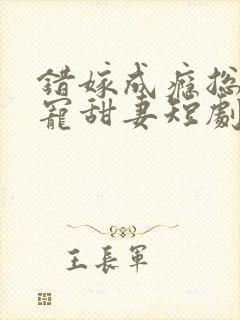 錯嫁成癮總
寵甜妻短劇
王長軍